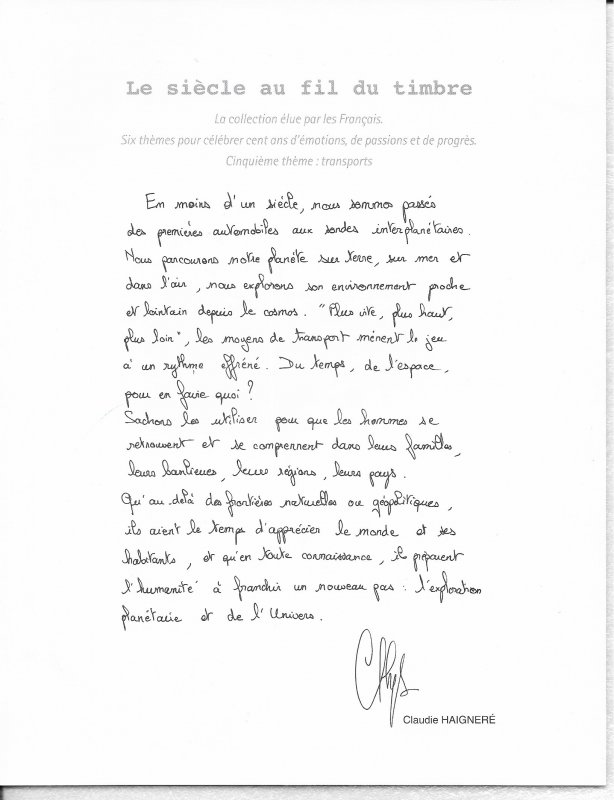 Le siècle au fil du timbre
La collection élue par les Français.
Six thèmes pour célébrer cent ans d'émotions, de passions et de progrès.
Cinquième thème : transports
En moins d'un siècle, nous sommes passés
des premières automobiles aux sondes interplanétaires.
Nous parcourons notre planète sur terre, sur mer et
dans l'air, nous explorons son environnement proche
et lointain depuis le cosmos. "Plus vite, plus haut,
plus loin", les moyens de transport mènent le jeu
à un rythme effréné. Du temps, de l'espace,
pour en faire quoi ?
Sachons les utiliser pour que les hommes se
retrouvent et se comprennent dans leurs familles,
leurs banlieues, leurs régions, leurs pays.
Qu'au-delà des frontières naturelles ou géopolitiques,
ils aient le temps d'apprécier le monde et ses
habitants, et qu'en toute connaissance, ils préparent
l'humanité à franchir un nouveau pas : l'exploration
planétaire et de l'Univers.
Claudie HAIGNERÉ